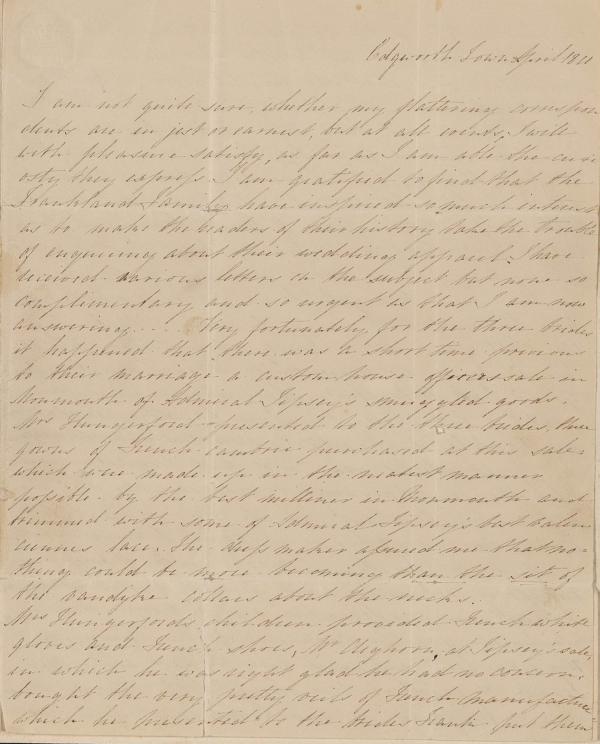 Edgworth Town April 1811
I am not quite sure, whether my flattering correspon
dents are in jest or earnest, but at all events, I will
with pleasure satisfy, as far as I am able the curi
osity they express I am gratified to find that the
Frankland Family have inspired so much interest
as to make the readers of their history take the trouble
of enquiring about their wedding apparel. I have
received various letters on the subject but none so
complimentary and so urgent as that I am now
answering.... Very fortunately for the three brides
it happened that there was a short time previous
to their marriage a custom house officers sale in
Monmouth of Admiral Tipsey's smuggled goods.
Mrs Hungerford presented to the three brides, three
gowns of French cambric purchased at this sale
which were made up in the neatest manner
possible by the best milliner in Monmouth and
trimmed with some of Admiral Tipsey's best valen
ciennes lace. The dress maker assured me that no-
thing could be more becoming than the sit of
the vandyke collars about the necks.
Mrs Hungerford's children provided French white
gloves and French shoes, Mr Cleghorn, at Tipsey's sale
in which he was right glad he had no concern,
bought the very pretty veils of French manufacture
which he presented to the brides Frank put them